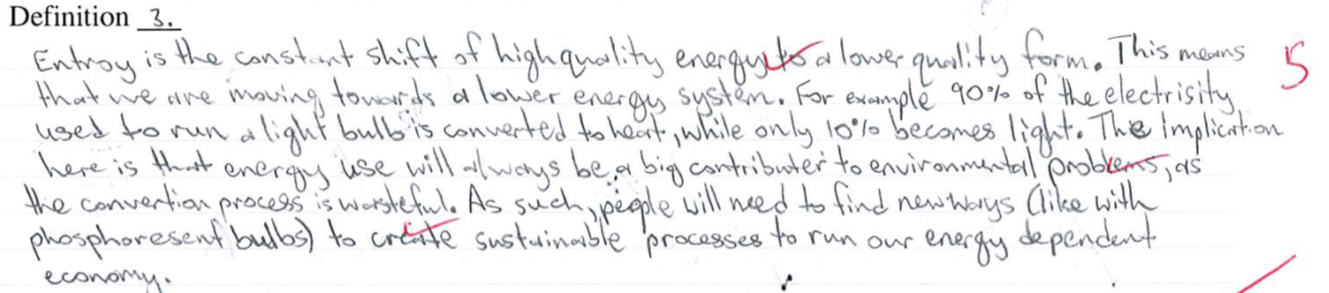 Definition 3.
Entropy is the constant shift of high quality energy to a lower quality form. This means
5
that we are moving towards a lower energy system. For example 90% of the electrisity
used to run a light bulb is converted to heat, while only 10% becomes light. The implication
here is that energy use will always be a big contributer to environmental problems, as
the convertion process is wasteful. As such, people will need to find new ways (like with
phosphoresent bulbs) to create sustainable processes to run our energy dependent
economy.